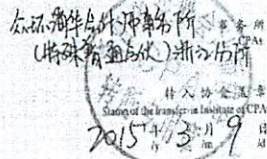 众环海华会计师事务所
(特殊普通合伙)浙江分所
事务所
CPAs
转入协会盖章
Stamp of the transfer-in Institute of CPAs
2015年3月9日
/y /m /d